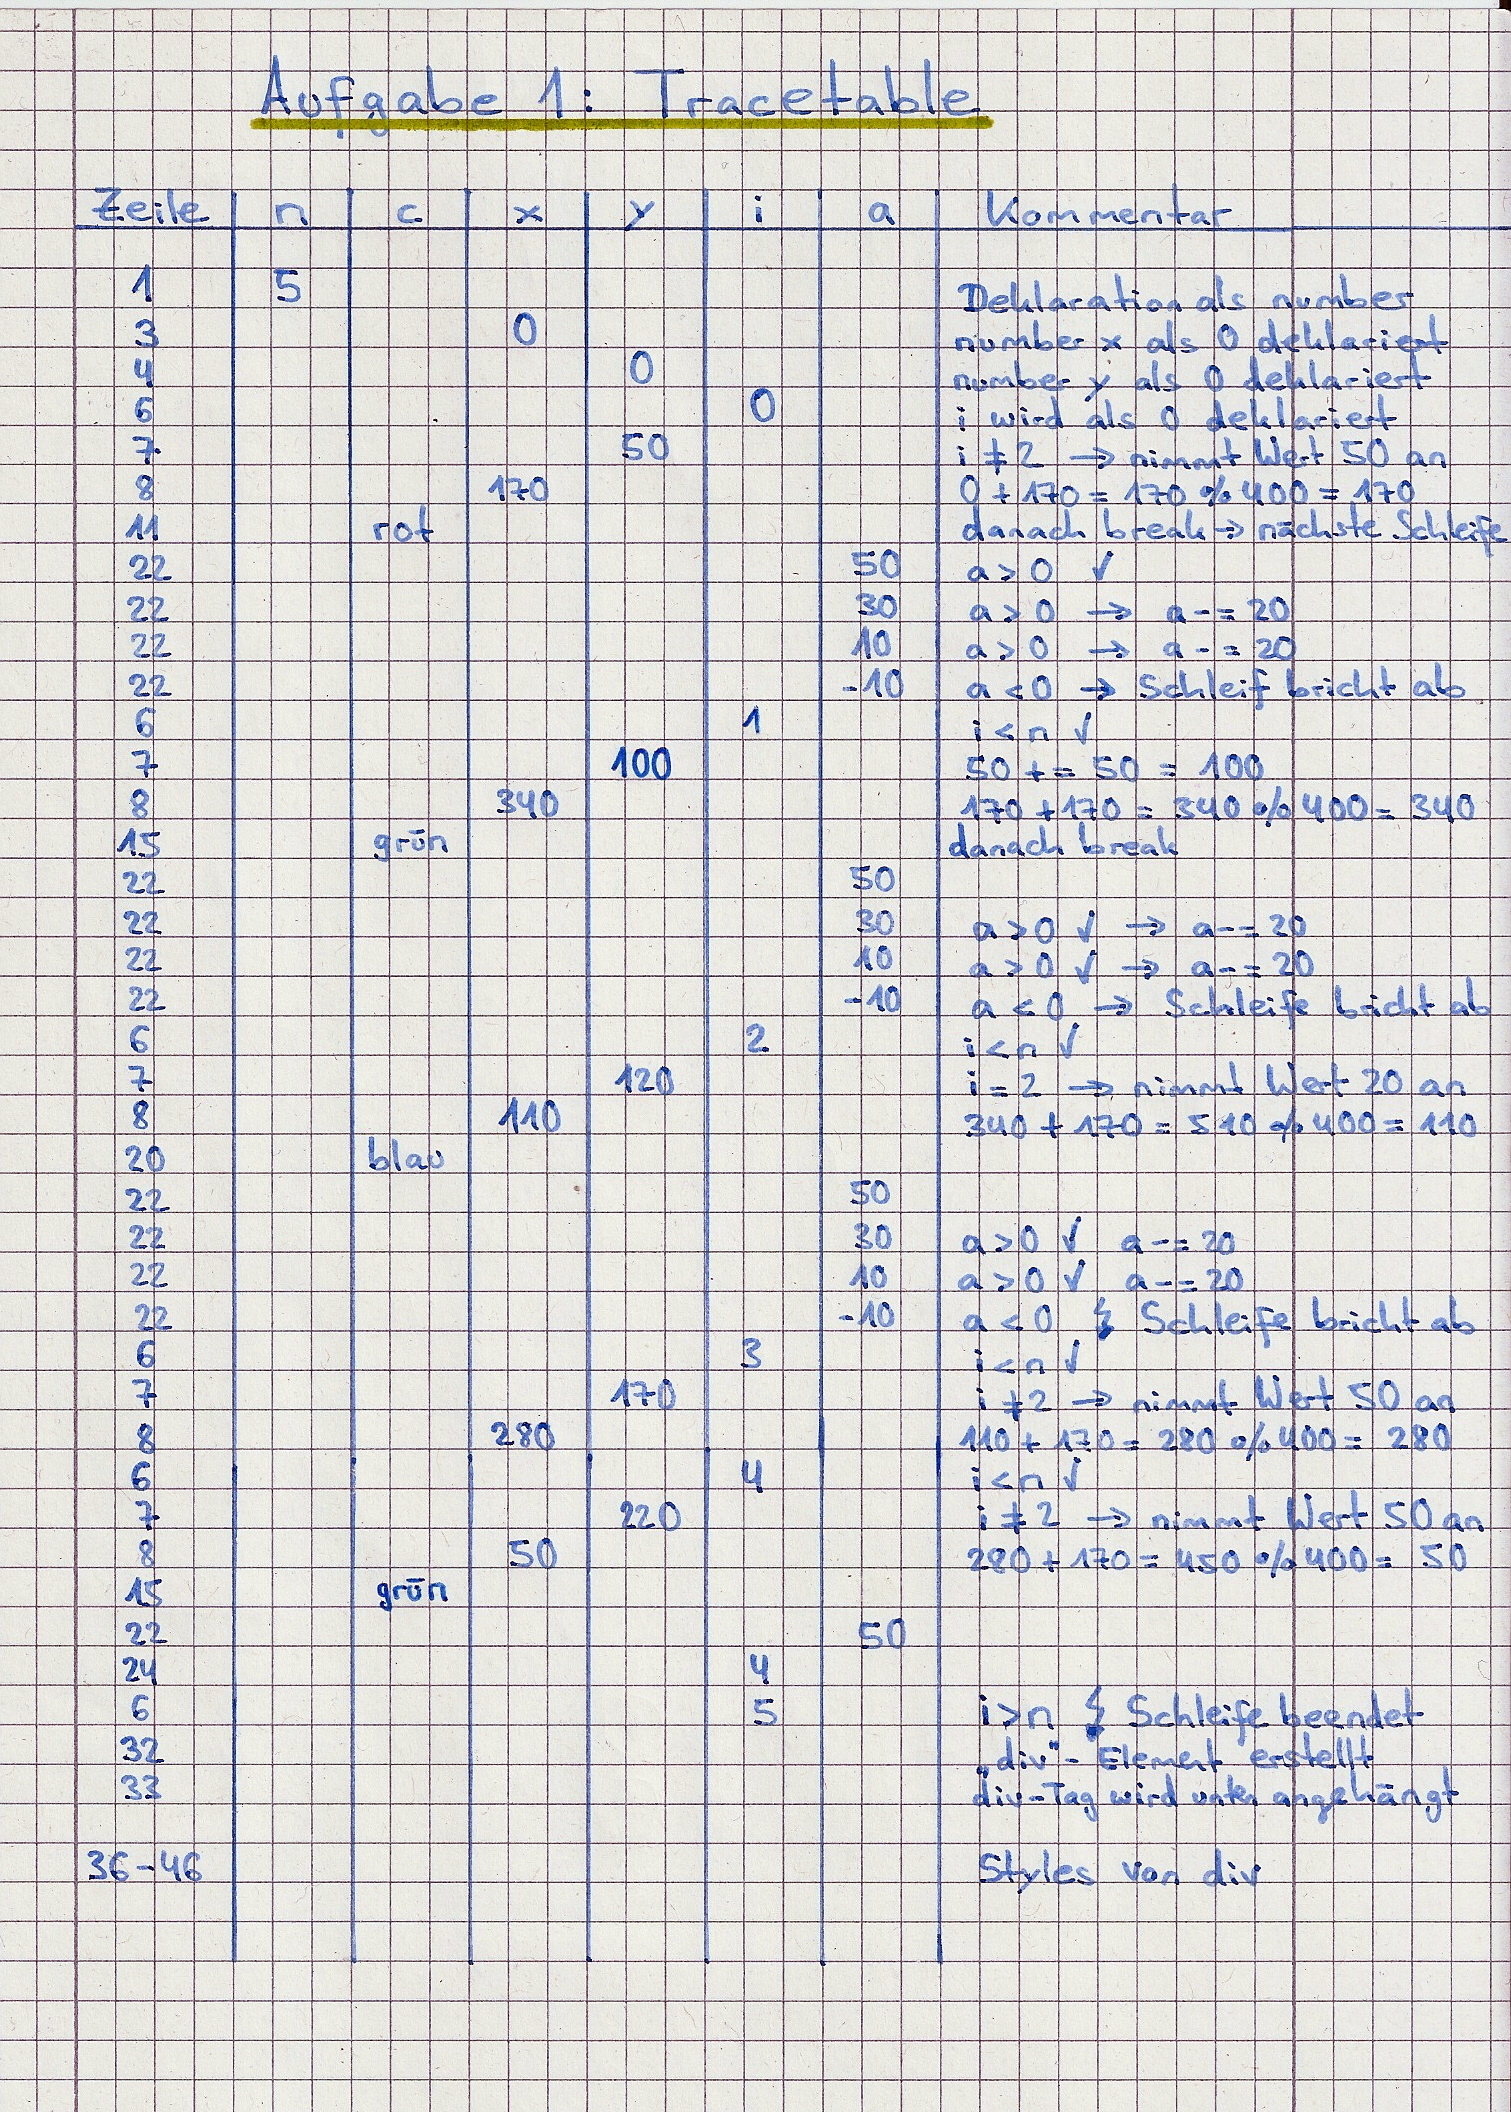 Aufgabe 1: Tracetable
Zeile n c x y i a Kommentar
1 5 Deklaration als number
3 0 number x als 0 deklariert
4 0 number y als 0 deklariert
6 0 i wird als 0 deklariert
7 50 i ≠ 2 → nimmt Wert 50 an
8 170 0 + 170 = 170 % 400 = 170
11 rot danach break → nächste Schleife
22 50 a > 0 ✓
22 30 a > 0 → a -= 20
22 10 a > 0 → a -= 20
22 -10 a < 0 → Schleif bricht ab
6 1 i < n ✓
7 100 50 += 50 = 100
8 340 170 + 170 = 340 % 400 = 340
15 grün danach break
22 50
22 30 a > 0 ✓ → a -= 20
22 10 a > 0 ✓ → a -= 20
22 -10 a < 0 → Schleife bricht ab
6 2 i < n ✓
7 120 i = 2 → nimmt Wert 20 an
8 110 340 + 170 = 510 % 400 = 110
20 blau
22 50
22 30 a > 0 ✓ a -= 20
22 10 a > 0 ✓ a -= 20
22 -10 a < 0 ↯ Schleife bricht ab
6 3 i < n ✓
7 170 i ≠ 2 → nimmt Wert 50 an
8 280 110 + 170 = 280 % 400 = 280
6 4 i < n ✓
7 220 i ≠ 2 → nimmt Wert 50 an
8 50 280 + 170 = 450 % 400 = 50
15 grün
22 50
24 4
6 5 i > n ↯ Schleife beendet
32 „div"- Element erstellt
33 div-Tag wird unten angehängt
36-46 Styles von div